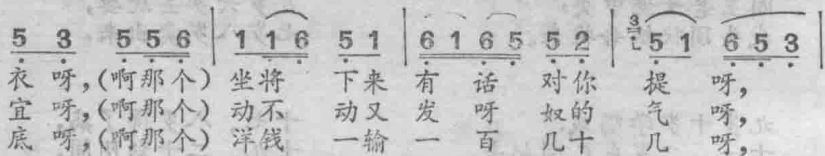 5 3 5 5 6 | 1 1 6 5 1 | 6 1 6 5 5 2 | 3 5 1 6 5 3 |
衣 呀,(啊那个) 坐将 下来 有 话 对你 提 呀,
宜 呀,(啊那个) 动不 动又 发 呀 奴的 气 呀,
底 呀,(啊那个) 洋钱 一输 一 百 几十 几 呀,